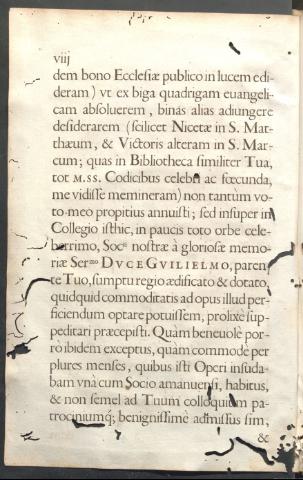 viij
dem bono Ecclesiæ publico in lucem edi-
deram) vt ex biga quadrigam euangeli-
cam absoluerem, binas alias adiungere
desiderarem (scilicet Nicetæ in S. Mat-
thæum, & Victoris alteram in S. Mar-
cum; quas in Bibliotheca similiter Tua,
tot M.SS. Codicibus celebri ac fœcunda,
me vidisse memineram) non tantùm vo-
to meo propitius annuisti; sed insuper in
Collegio isthic, in paucis toto orbe cele-
berrimo, Soc.ti nostræ à gloriosæ memo-
riæ Ser.mo DVCE GVILIELMO, paren-
te Tuo, sumptu regio ædificato & dotato,
quidquid commoditatis ad opus illud per-
ficiendum optare potuissem, prolixè sup-
peditari præcepisti. Quàm beneuolè por-
rò ibidem exceptus, quàm commodè per
plures menses, quibus isti Operi insuda-
bam vnà cum Socio amanuensi, habitus,
& non semel ad Tuum colloquium pa-
trociniumq́; benignissimè admissus sim,
&